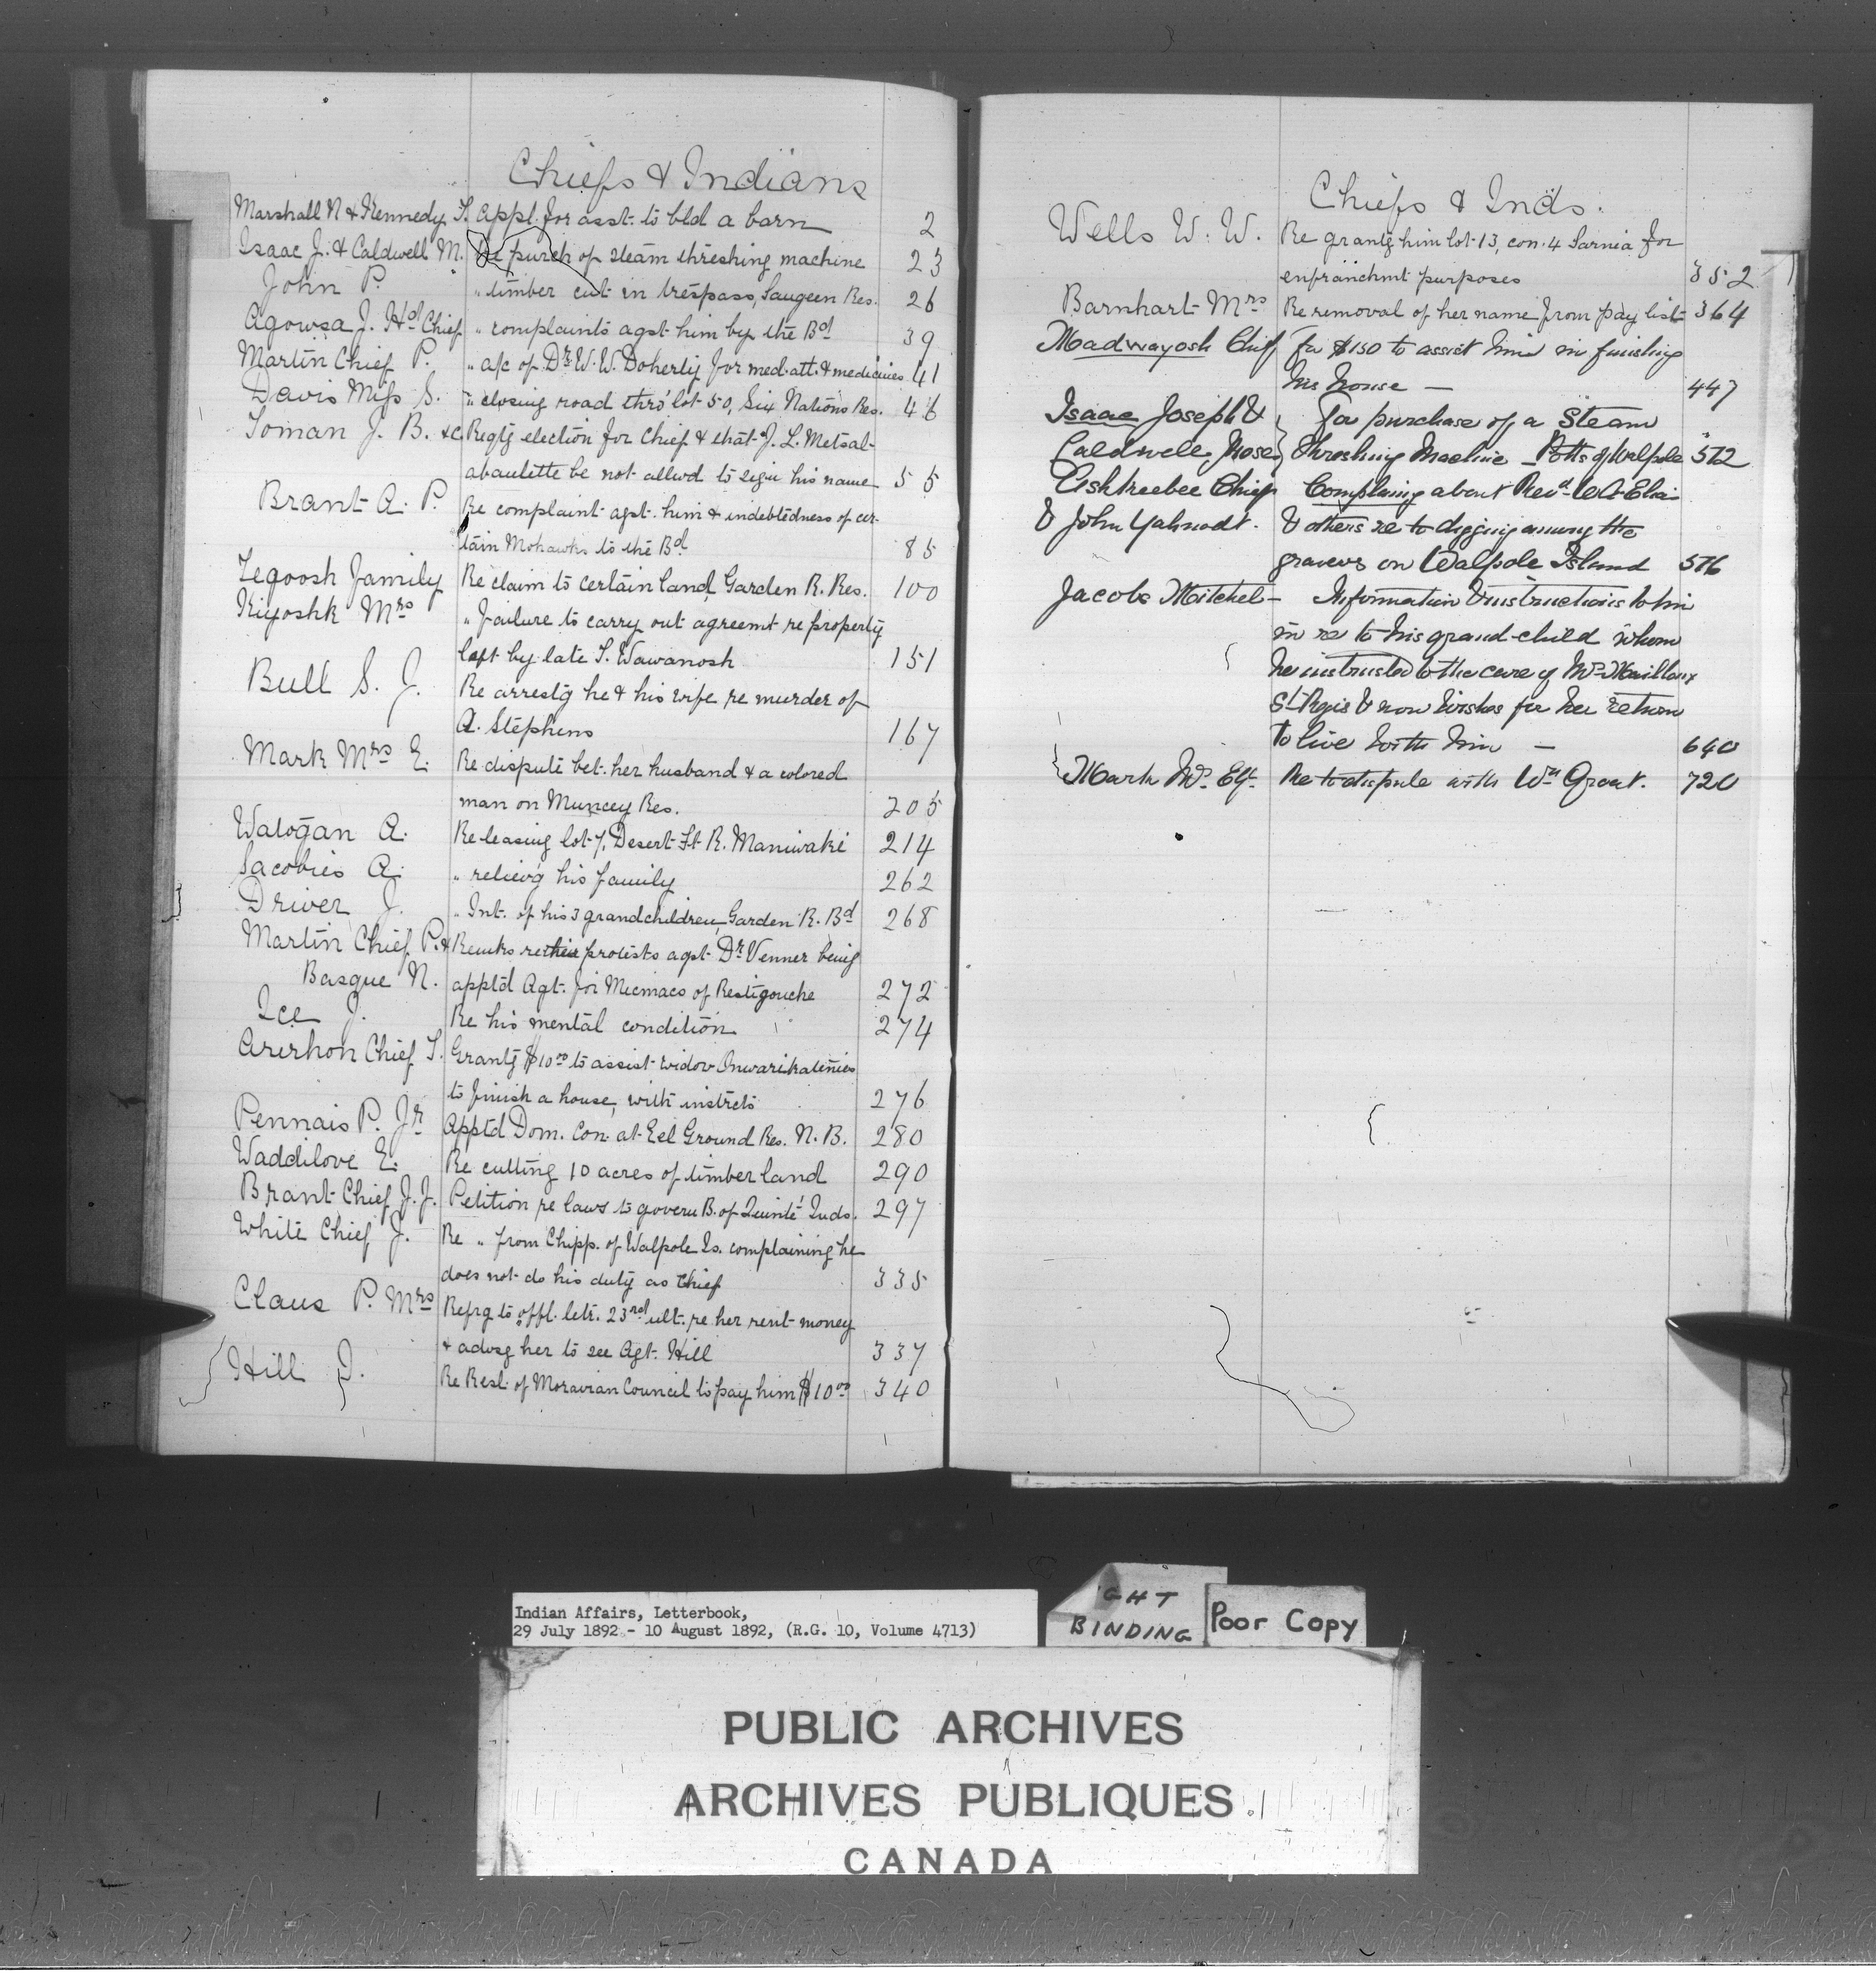 Chiefs & Indians
Marshall N & Kennedy T. Appl. for asst. to bld a barn 2
Isaac J. & Caldwell M. Re purch of steam threshing machine 23
John P. " timber cut in trespass, Saugeen Res. 26
Agowsa J. Hd Chief " complaints agst him by the Bd 39
Martin Chief P. " a/c of Dr. W. W. Doherty for med. att. & medicines 41
Davis Miss S. " closing road thro' lot 50, Six Nations Res. 46
Toman J. B. &c. Regtg election for Chief & that J. L. Metsal-
abaulette be not allwd to sign his name 55
Brant A. P. Re complaint agst. him & indebtedness of cer-
tain Mohawks to the Bd 85
Tegoosh Family Re claim to certain land Garden R. Res. 100
Kiyoshk Mrs " failure to carry out agreemt re property
left by late T. Wawanosh 151
Bull S. J. Re arrestg he & his wife re murder of
A. Stephens 167
Mark Mrs E. Re dispute bet. her husband & a colored
man on Muncey Res. 205
Watogan A. Re leasing lot 7, Desert Ft R. Maniwaki 214
Jacobies A. " relievg his family 262
Driver J. " Int. of his 3 grandchildren, Garden R. Bd 268
Martin Chief P. & Remks re their protests agst Dr. Venner being
Basque N. apptd Agt. for Micmacs of Restigouche 272
Ice J. Re his mental condition 274
Arirhon Chief T. Grantg $10.00 to assist widow Onwarikatenies
to finish a house, with instrcts 276
Pennais P. Jr Apptd Dom. Con. at Eel Ground Res. N. B. 280
Waddilove E. Re cutting 10 acres of timber land 290
Brant Chief J. J. Petition re laws to govern B. of Quinté Inds. 297
White Chief J. Re " from Chipp. of Walpole Is. complaining he
does not do his duty as Chief 335
Claus P. Mrs Refrg to offl. letr. 23rd ult. re her rent money
& advsg her to see Agt. Hill 337
Hill J. Re Resl. of Moravian Council to pay him $10.00 340
Chiefs & Inds.
Wells W. W. Re grantg him lot 13, con. 4 Sarnia for
enfranchmt purposes 352
Barnhart Mrs Re removal of her name from pay list 364
Madwayosh Chief for $150 to assist him in finishing
his house — 447
Isaac Joseph & for purchase of a Steam
Caldwell, Moses Threshing Machine — Potts of Walpole 572
Ashkeebee Chief Complaing about Revd
& John Yahnodt. & others re to digging among the
graves on Walpole Island 576
Jacobs Mitchel — Information & instructions to him
in re to his grand-child whom
he intrusted to the care of Mr. Mailloux
St. Regis & now wishes for her return
to live with him — 640
Mark Mrs. Elz. Re to dispute with Wm Grant. 720
Indian Affairs, Letterbook,
29 July 1892 - 10 August 1892, (R.G. 10, Volume 4713)
GHT
BINDING
Poor Copy
PUBLIC ARCHIVES
ARCHIVES PUBLIQUES
CANADA